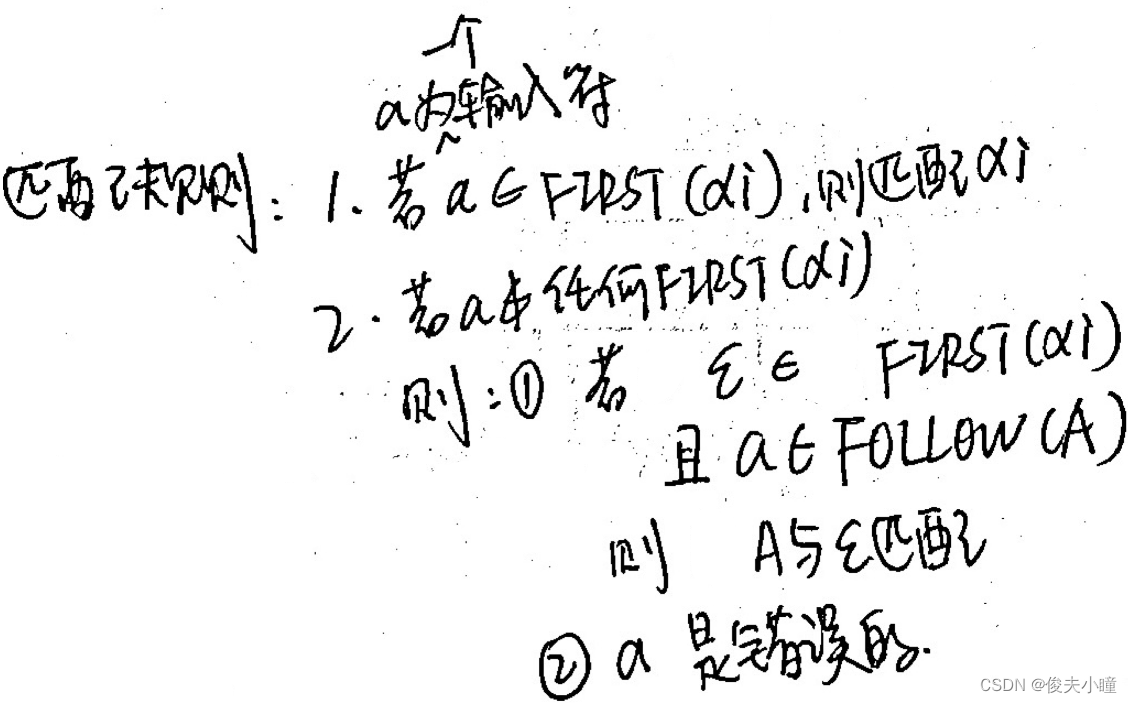 一个
a为输入符
匹配规则：1. 若 a ∈ FIRST(αi),则匹配αi
2. 若a∉任何FIRST(αi)
则：① 若 ε ∈ FIRST(αi)
且 a ∈ FOLLOW(A)
则 A与ε匹配
② a 是错误的.
CSDN @俊夫小瞳